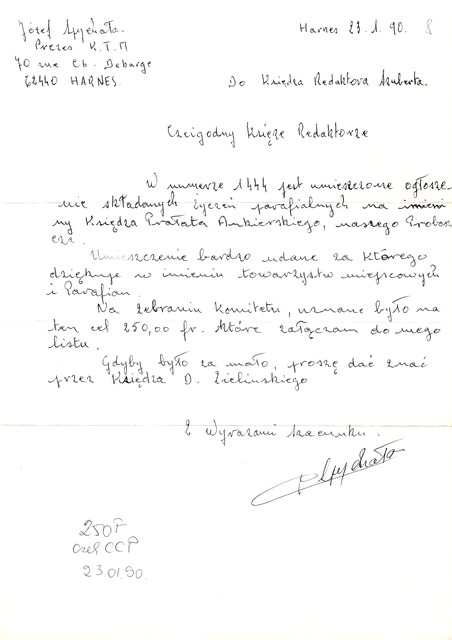 Józef
Prezes K.T.M
70 rue Ch. Debarge
62440 HARNES.
Harnes 23.1.90. 8
Do Księdza Redaktora Szuberta.
Czcigodny Księże Redaktorze
W numerze 1444 jest umieszczone ogłosze
nie składanych życzeń parafialnych na imieni
ny Księdza Prałata Ankierskiego, naszego Probosz
cza.
Umieszczenie bardzo udane za którego
dziękuje w imieniu towarzystw miejscowych
i Parafian.
Na zebraniu Komitetu, uznane było na
ten cel 250,00 fr. które załączam do mego
listu.
Gdyby było za mało, proszę dać znać
przez Księdza D. Zielinskiego
Z Wyrazami szacunku.
250F
czek CCP
23.01.90.